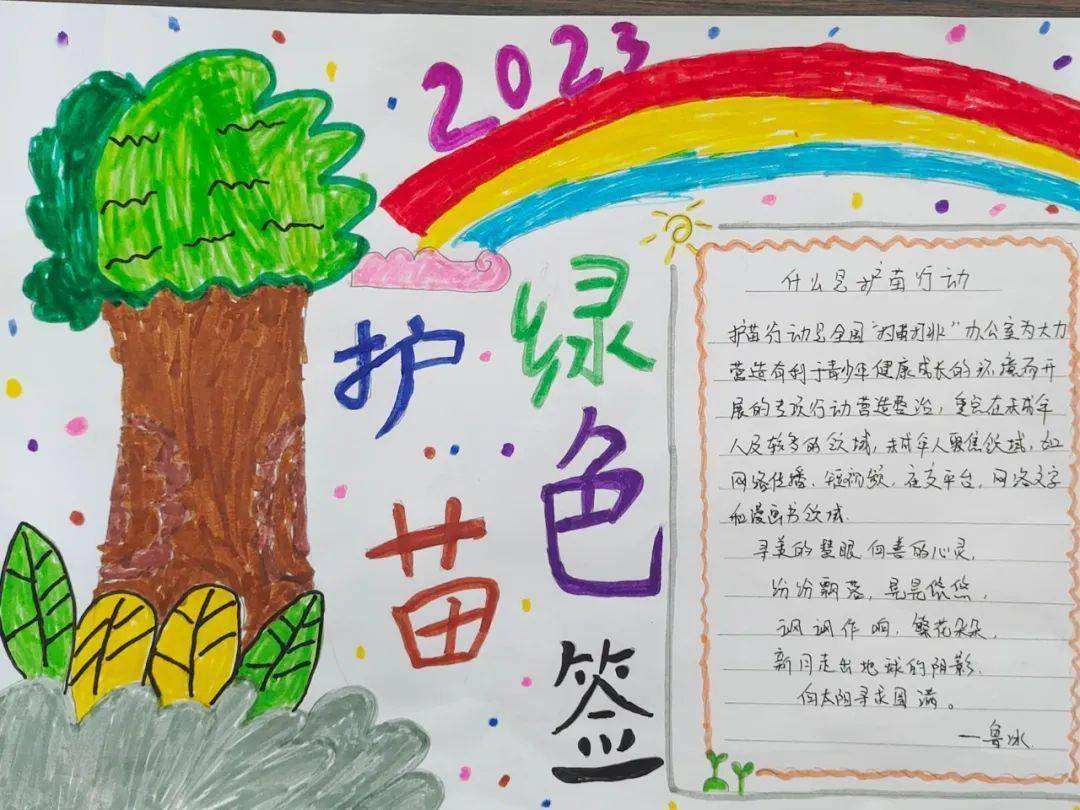 2023
护苗
绿色签
什么是护苗行动
护苗行动是全国“扫黄打非”办公室为大力
营造有利于青少年健康成长的环境而开
展的专项行动营造整治，重点在未成年
人及较多的领域，未成年人聚焦领域，如
网络传播、短视频、社交平台，网络文字
和漫画书领域.
寻美的慧眼 向善的心灵，
纷纷飘落，晃晃悠悠，
飒飒作响，繁花朵朵，
新月走出地球的阴影，
向太阳寻求圆满。
一鲁冰